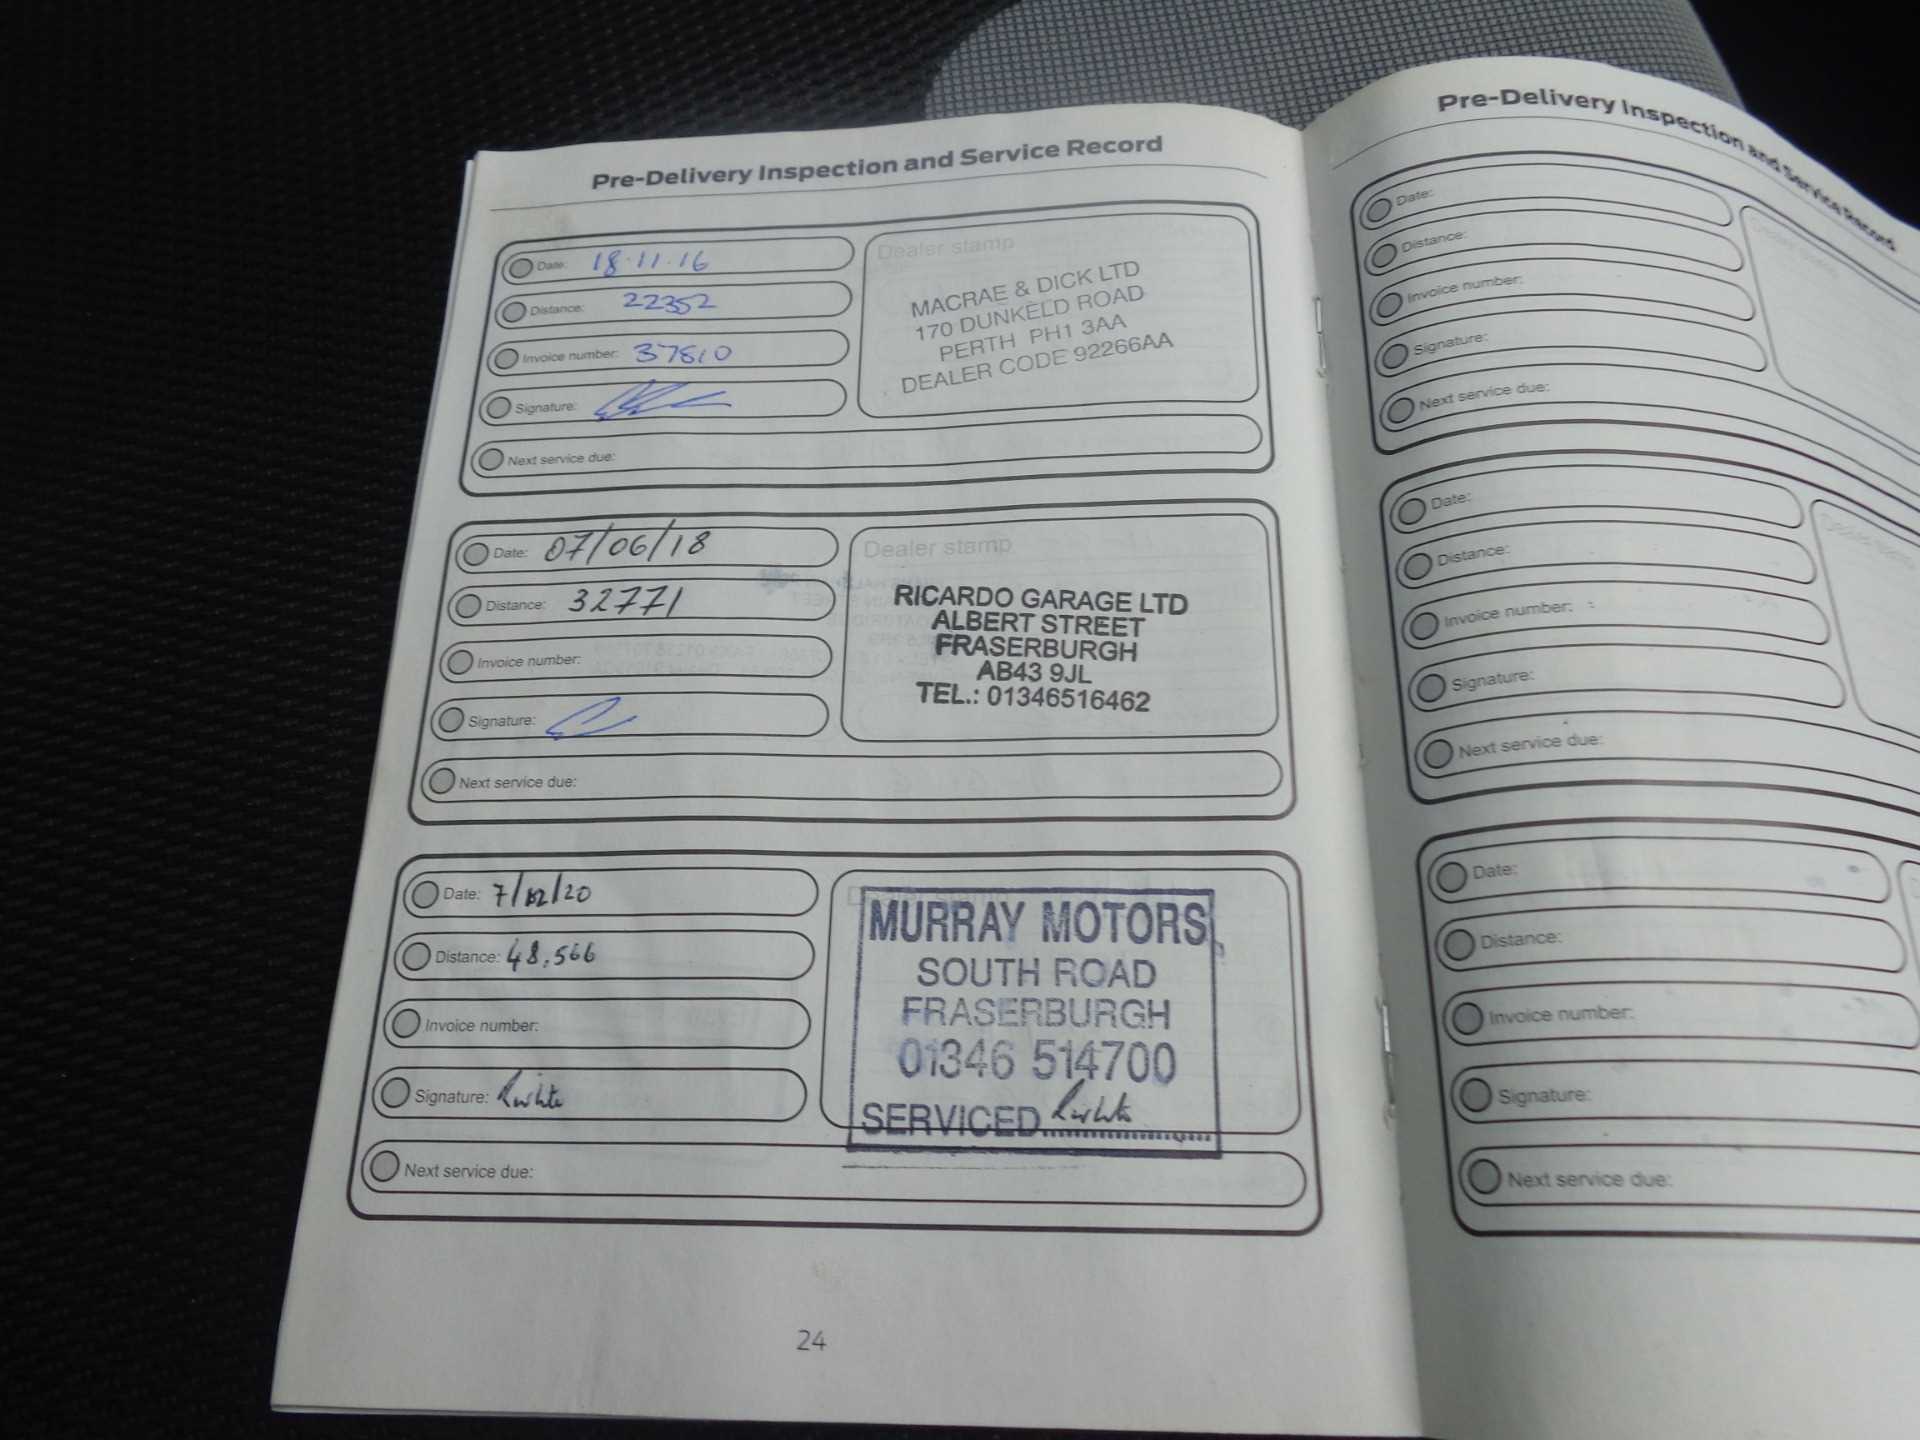 Pre-Delivery Inspection and Service Record
Date: 18.11.16
Distance: 22352
Invoice number: 37810
Signature:
Next service due:
Dealer stamp
MACRAE & DICK LTD
170 DUNKELD ROAD
PERTH PH1 3AA
DEALER CODE 92266AA
Date: 07/06/18
Distance: 32771
Invoice number:
Signature:
Next service due:
Dealer stamp
RICARDO GARAGE LTD
ALBERT STREET
FRASERBURGH
AB43 9JL
TEL.: 01346516462
Date: 7/12/20
Distance: 48,566
Invoice number:
Signature:
Next service due:
Dealer stamp
MURRAY MOTORS
SOUTH ROAD
FRASERBURGH
01346 514700
SERVICED
24
Pre-Delivery Inspection and Service Record
Date:
Distance:
Invoice number:
Signature:
Next service due:
Dealer stamp
Date:
Distance:
Invoice number:
Signature:
Next service due:
Dealer stamp
Date:
Distance:
Invoice number:
Signature:
Next service due: